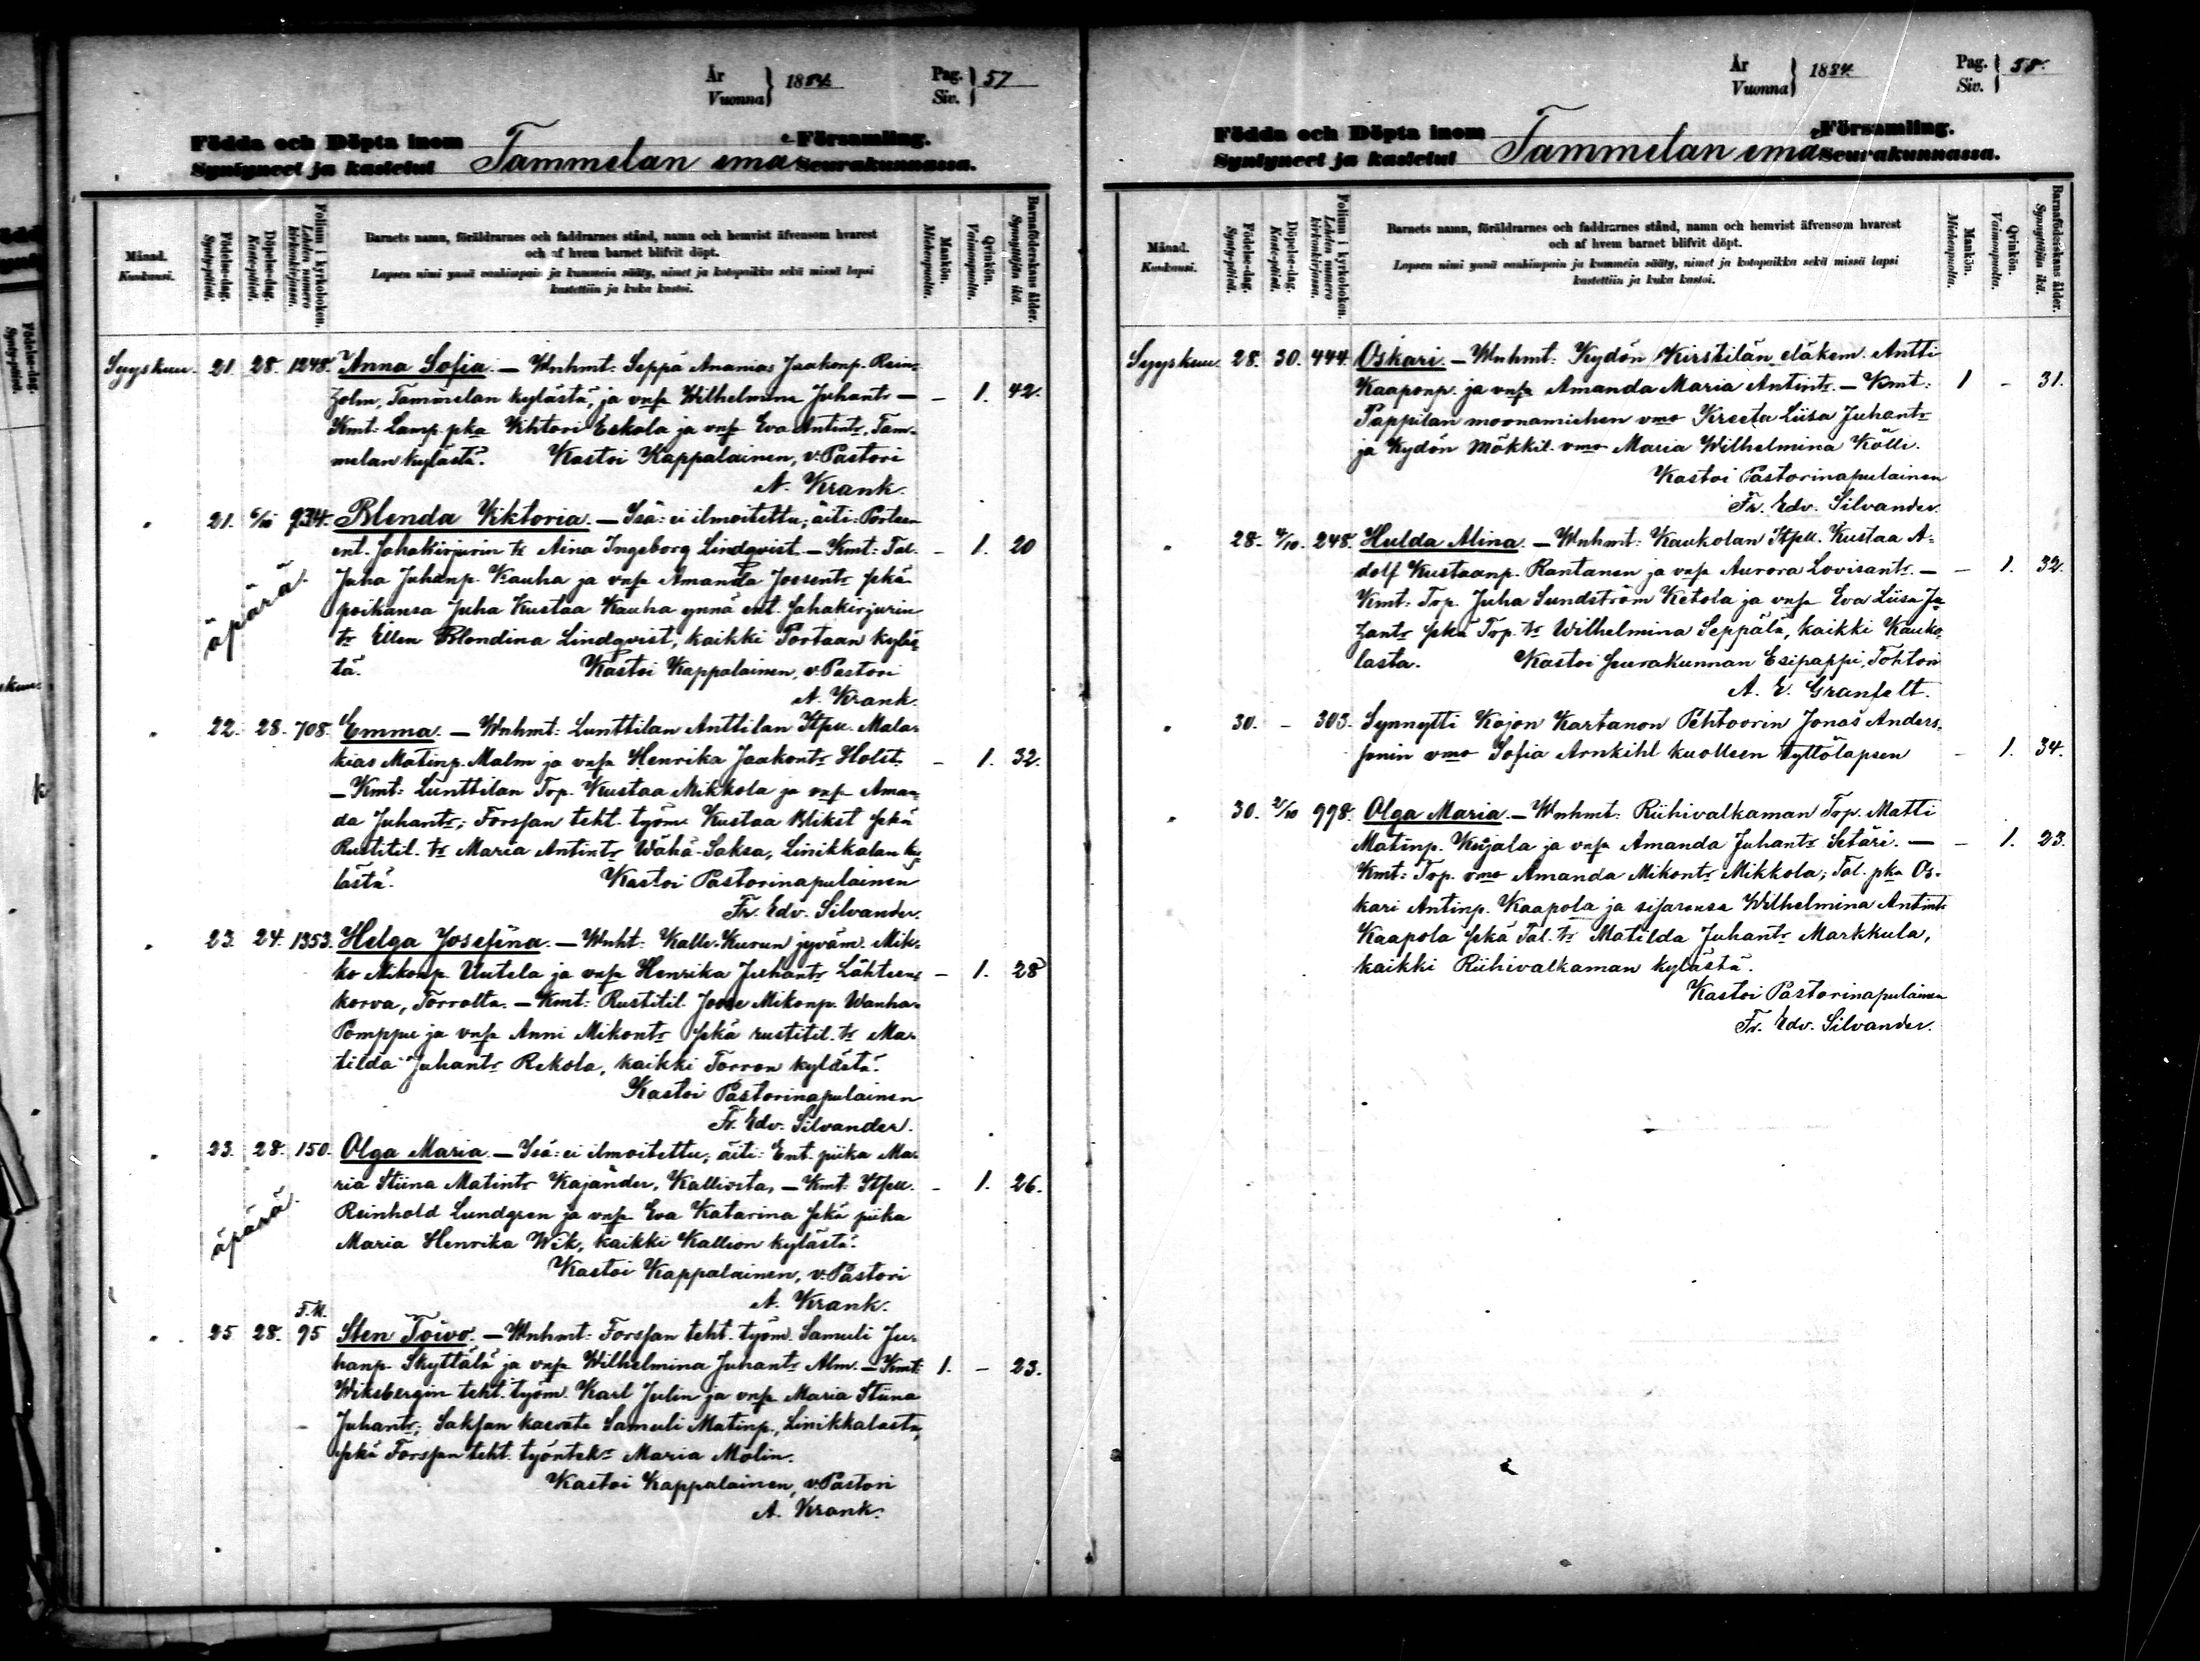 År
Vuonna } 1884. Pag.
Siv. } 57
Födda och Döpta inom
Syntyneet ja kastetut Tammelan emä Församling.
Seurakunnassa.
Månad. Kuukausi.
Födelse-dag. Synty-päivä.
Döpelse-dag. Kaste-päivä.
Folium i kyrkoboken. Lehden numero kirkonkirjassa.
Barnets namn, föräldrarnes och faddrarnes stånd, namn och hemvist äfvensom hvarest
och af hvem barnet blifvit döpt.
Lapsen nimi ynnä vanhimpain ja kummein sääty, nimet ja kotopaikka sekä missä lapsi
kastettiin ja kuka kastoi.
Mankön. Miehenpuolta.
Qvinkön. Vaimonpuolta.
Barnaföderskans ålder. Synnyttäjän ikä.
Syyskuu. 21. 28. 1248. Anna Sofia. — Wnhmt: Seppä Ananias Jaakonp. Rein-
holm, Tammelan kylästä, ja vnsa Wilhelmina Juhantr — – 1. 42.
Kmt: Lamp. pka Wihtori Eskola ja vnsa Eva Antintr, Tam-
melan kylästä. Kastoi Kappalainen, v. Pastori
A. Krank.
" 21. 934. Blenda Viktoria. — Isä: ei ilmoitettu; äiti: Portaan
ent. Sahakirjurin tr Aina Ingeborg Lindqvist. — Kmt: Tal. – 1. 20
Juha Juhanp. Kauha ja vnsa Amanda Joosentr sekä
poikansa Juha Kustaa Kauha ynnä ent. Sahakirjurin
tr Ellen Blondina Lindqvist, kaikki Portaan kyläs-
tä. Kastoi Kappalainen, v. Pastori
A. Krank.
äpärä.
" 22. 28. 708. Emma. — Wnhmt: Lunttilan Anttilan Itsu. Mala-
kias Matinp. Malm ja vnsa Henrika Jaakontr Holst. – 1. 32.
— Kmt: Lunttilan Trp. Kustaa Mikkola ja vnsa Aman-
da Juhantr; Forssan teht. työm. Kustaa Blikst sekä
Rustitil. tr Maria Antintr Wähä-Saksa, Linikkalan ky-
lästä. Kastoi Pastorinapulainen
Fr. Edv. Silvander.
" 23. 24. 1353. Helga Josefina. — Wnht: Kalle-Kurun jyväm. Mik-
ko Mikonp. Uutela ja vnsa Henrika Juhantr Lähteen- – 1. 28
korva, Torrolta. — Kmt: Rustitil. Joose Mikonp. Wanha-
Pomppu ja vnsa Anni Mikontr sekä rustitil. tr Ma-
tilda Juhantr Rekola, kaikki Torron kylästä.
Kastoi Pastorinapulainen
Fr. Edv. Silvander.
" 23. 28. 150. Olga Maria. — Isä: ei ilmoitettu; äiti: Ent. piika Ma-
ria Stiina Matintr Kajander, Kalliosta, — Kmt: Itsu. – 1. 26.
Reinhold Lundgren ja vnsa Eva Katarina sekä piika
Maria Henrika Wik, kaikki Kallion kylästä.
Kastoi Kappalainen, v. Pastori
A. Krank.
äpärä.
F.
" 25 28. 95 Sten Toivo. — Wnhmt: Forssan teht. työm. Samuli Ju-
hanp. Skyttälä ja vnsa Wilhelmina Juhantr Alm. — Kmt: 1. – 23.
Wiksbergin teht. työm. Karl Julin ja vnsa Maria Stiina
Juhantr; Saksan kasvate Samuli Matinp., Linikkalasta,
sekä Forssan teht. työntek. Maria Molin.
Kastoi Kappalainen, v. Pastori
A. Krank.
År
Vuonna } 1884. Pag.
Siv. } 58.
Födda och Döpta inom
Syntyneet ja kastetut Tammelan emä Församling.
Seurakunnassa.
Månad. Kuukausi.
Födelse-dag. Synty-päivä.
Döpelse-dag. Kaste-päivä.
Folium i kyrkoboken. Lehden numero kirkonkirjassa.
Barnets namn, föräldrarnes och faddrarnes stånd, namn och hemvist äfvensom hvarest
och af hvem barnet blifvit döpt.
Lapsen nimi ynnä vanhimpain ja kummein sääty, nimet ja kotopaikka sekä missä lapsi
kastettiin ja kuka kastoi.
Mankön. Miehenpuolta.
Qvinkön. Vaimonpuolta.
Barnaföderskans ålder. Synnyttäjän ikä.
Syyskuu. 28. 30. 444. Oskari. — Wnhmt: Kydön Kirstilän eläkem. Antti
Kaaponp. ja vnsa Amanda Maria Antintr. — Kmt: 1 – 31.
Pappilan moonamiehen vmo Kreeta Liisa Juhantr
ja Kydön mökkil. vmo Maria Wilhelmina Kölli.
Kastoi Pastorinapulainen
Fr. Edv. Silvander.
" 28. 4/10. 248. Hulda Alina. — Wnhmt: Kaukolan Itsu. Kustaa A-
dolf Kustaanp. Rantanen ja vnsa Aurora Lovisantr. — – 1. 32.
Kmt: Trp. Juha Sundström Ketola ja vnsa Eva Liisa Ju-
hantr sekä Trp. tr Wilhelmina Seppälä, kaikki Kauko-
lasta. Kastoi Seurakunnan Esipappi, Tohtori
A. E. Granfelt.
" 30. – 303. Synnytti Kojon Kartanon Pehtoorin Jonas Anders-
sonin vmo Sofia Arnkihl kuolleen tyttölapsen – 1. 34.
" 30. 2/10 998. Olga Maria. — Wnhmt: Riihivalkaman Trp. Matti
Matinp. Kujala ja vnsa Amanda Juhantr Setäri. — – 1. 23.
Kmt: Trp. vmo Amanda Mikontr Mikkola; Tal. pka Os-
kari Antinp. Kaapola ja sisarensa Wilhelmina Antintr
Kaapola sekä Tal. tr Matilda Juhantr Markkula,
kaikki Riihivalkaman kylästä.
Kastoi Pastorinapulainen
Fr. Edv. Silvander.